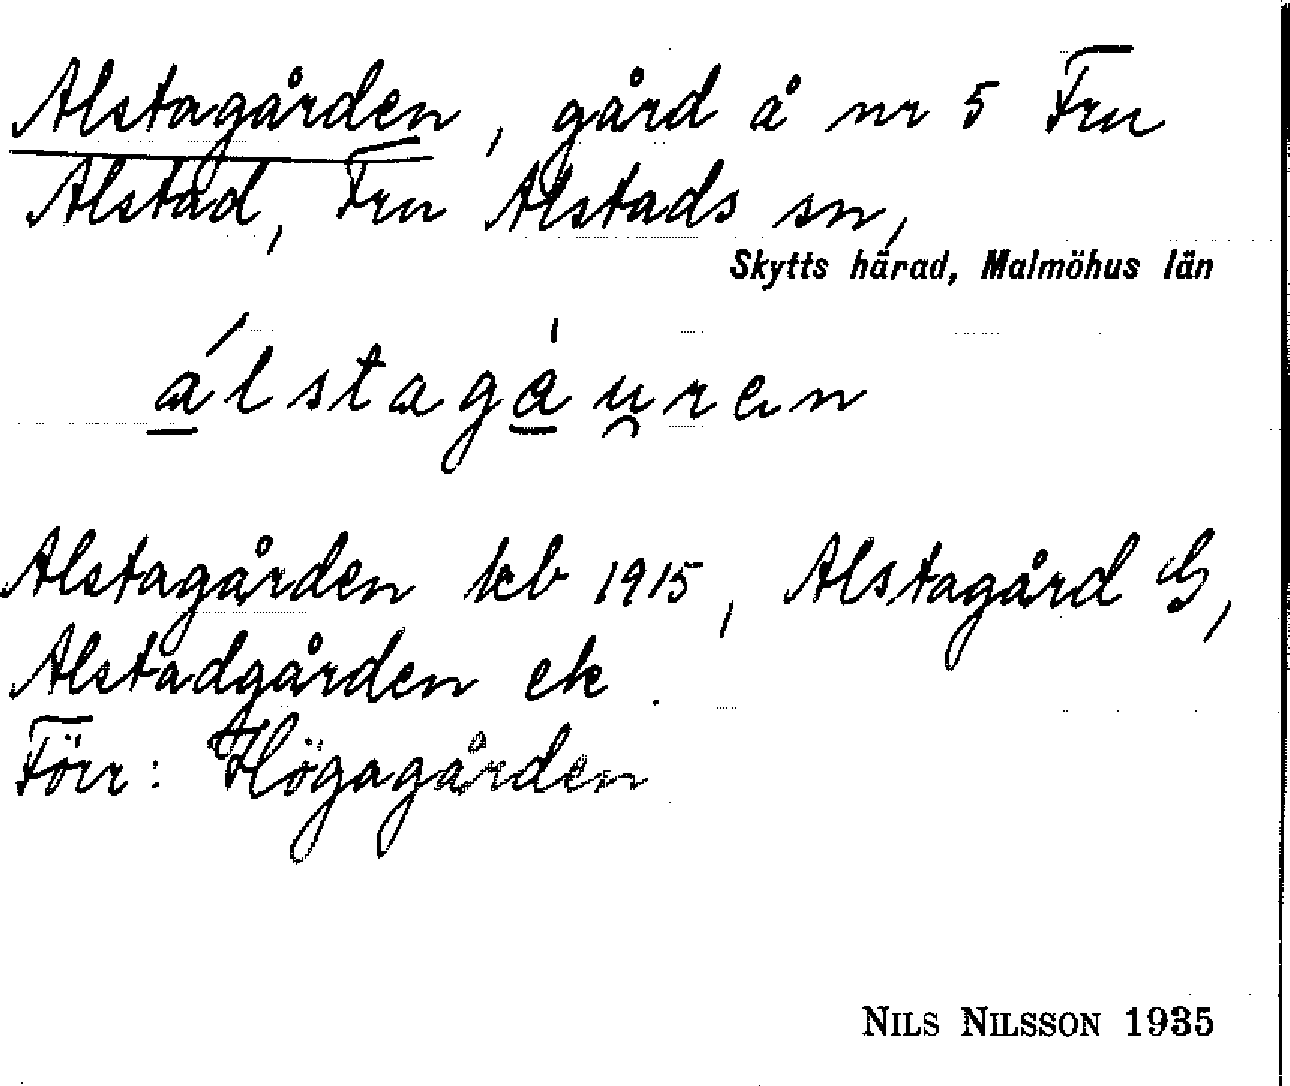 Alstagården, gård å nr 5 Fru
Alstad, Fru Alstads sn,
Skytts härad, Malmöhus län
álstagàu̯ren
Alstagården kb 1915, Alstagård G,
Alstadgården ek.
Förr: Högagården
NILS NILSSON 1935